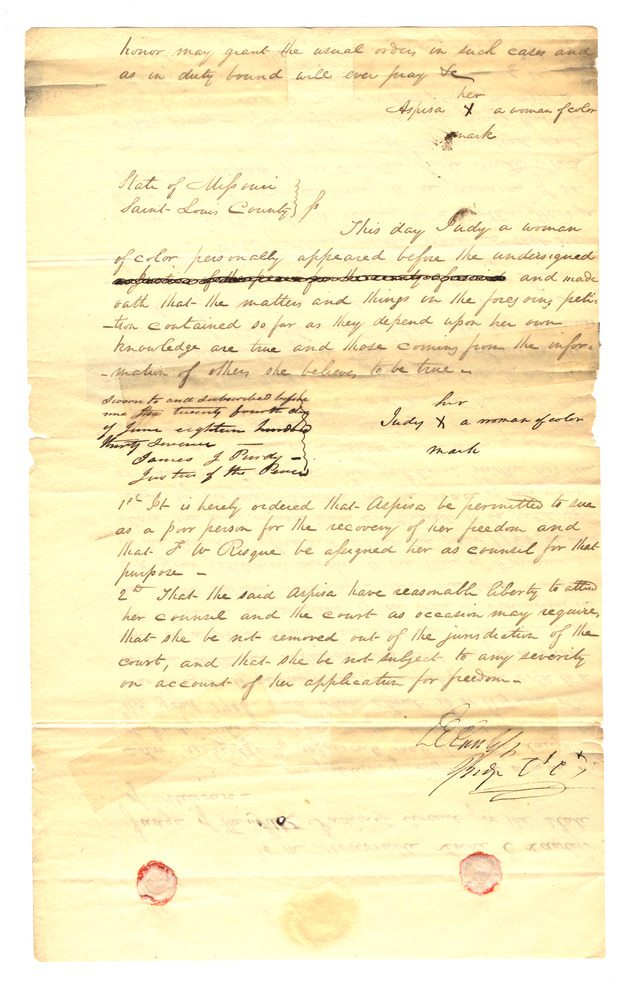 honor may grant the usual orders in such cases and
as in duty bound will ever pray &c
her
Aspisa X a woman of color
mark
State of Missouri
Saint Louis County } ss
This day Judy a woman
of color personally appeared before the undersigned
a Justice of the peace for the county aforesaid and made
oath that the matters and things in the foregoing peti-
-tion contained so far as they depend upon her own
knowledge are true and those coming from the infor-
-mation of others she believes to be true -
Sworn to and subscribed before
me this twenty fourth day
of June eighteen hundred
thirty seven -
James J Purdy -
Justice of the Peace
her
Judy X a woman of color
mark
1st It is hereby ordered that Aspisa be permitted to sue
as a poor person for the recovery of her freedom and
that F W Risque be assigned her as counsel for that
purpose -
2d That the said Aspisa have reasonable liberty to attend
her counsel and the court as occasion may require,
that she be not removed out of the jurisdiction of the
court, and that she be not subject to any severity
on account of her application for freedom -
Judge